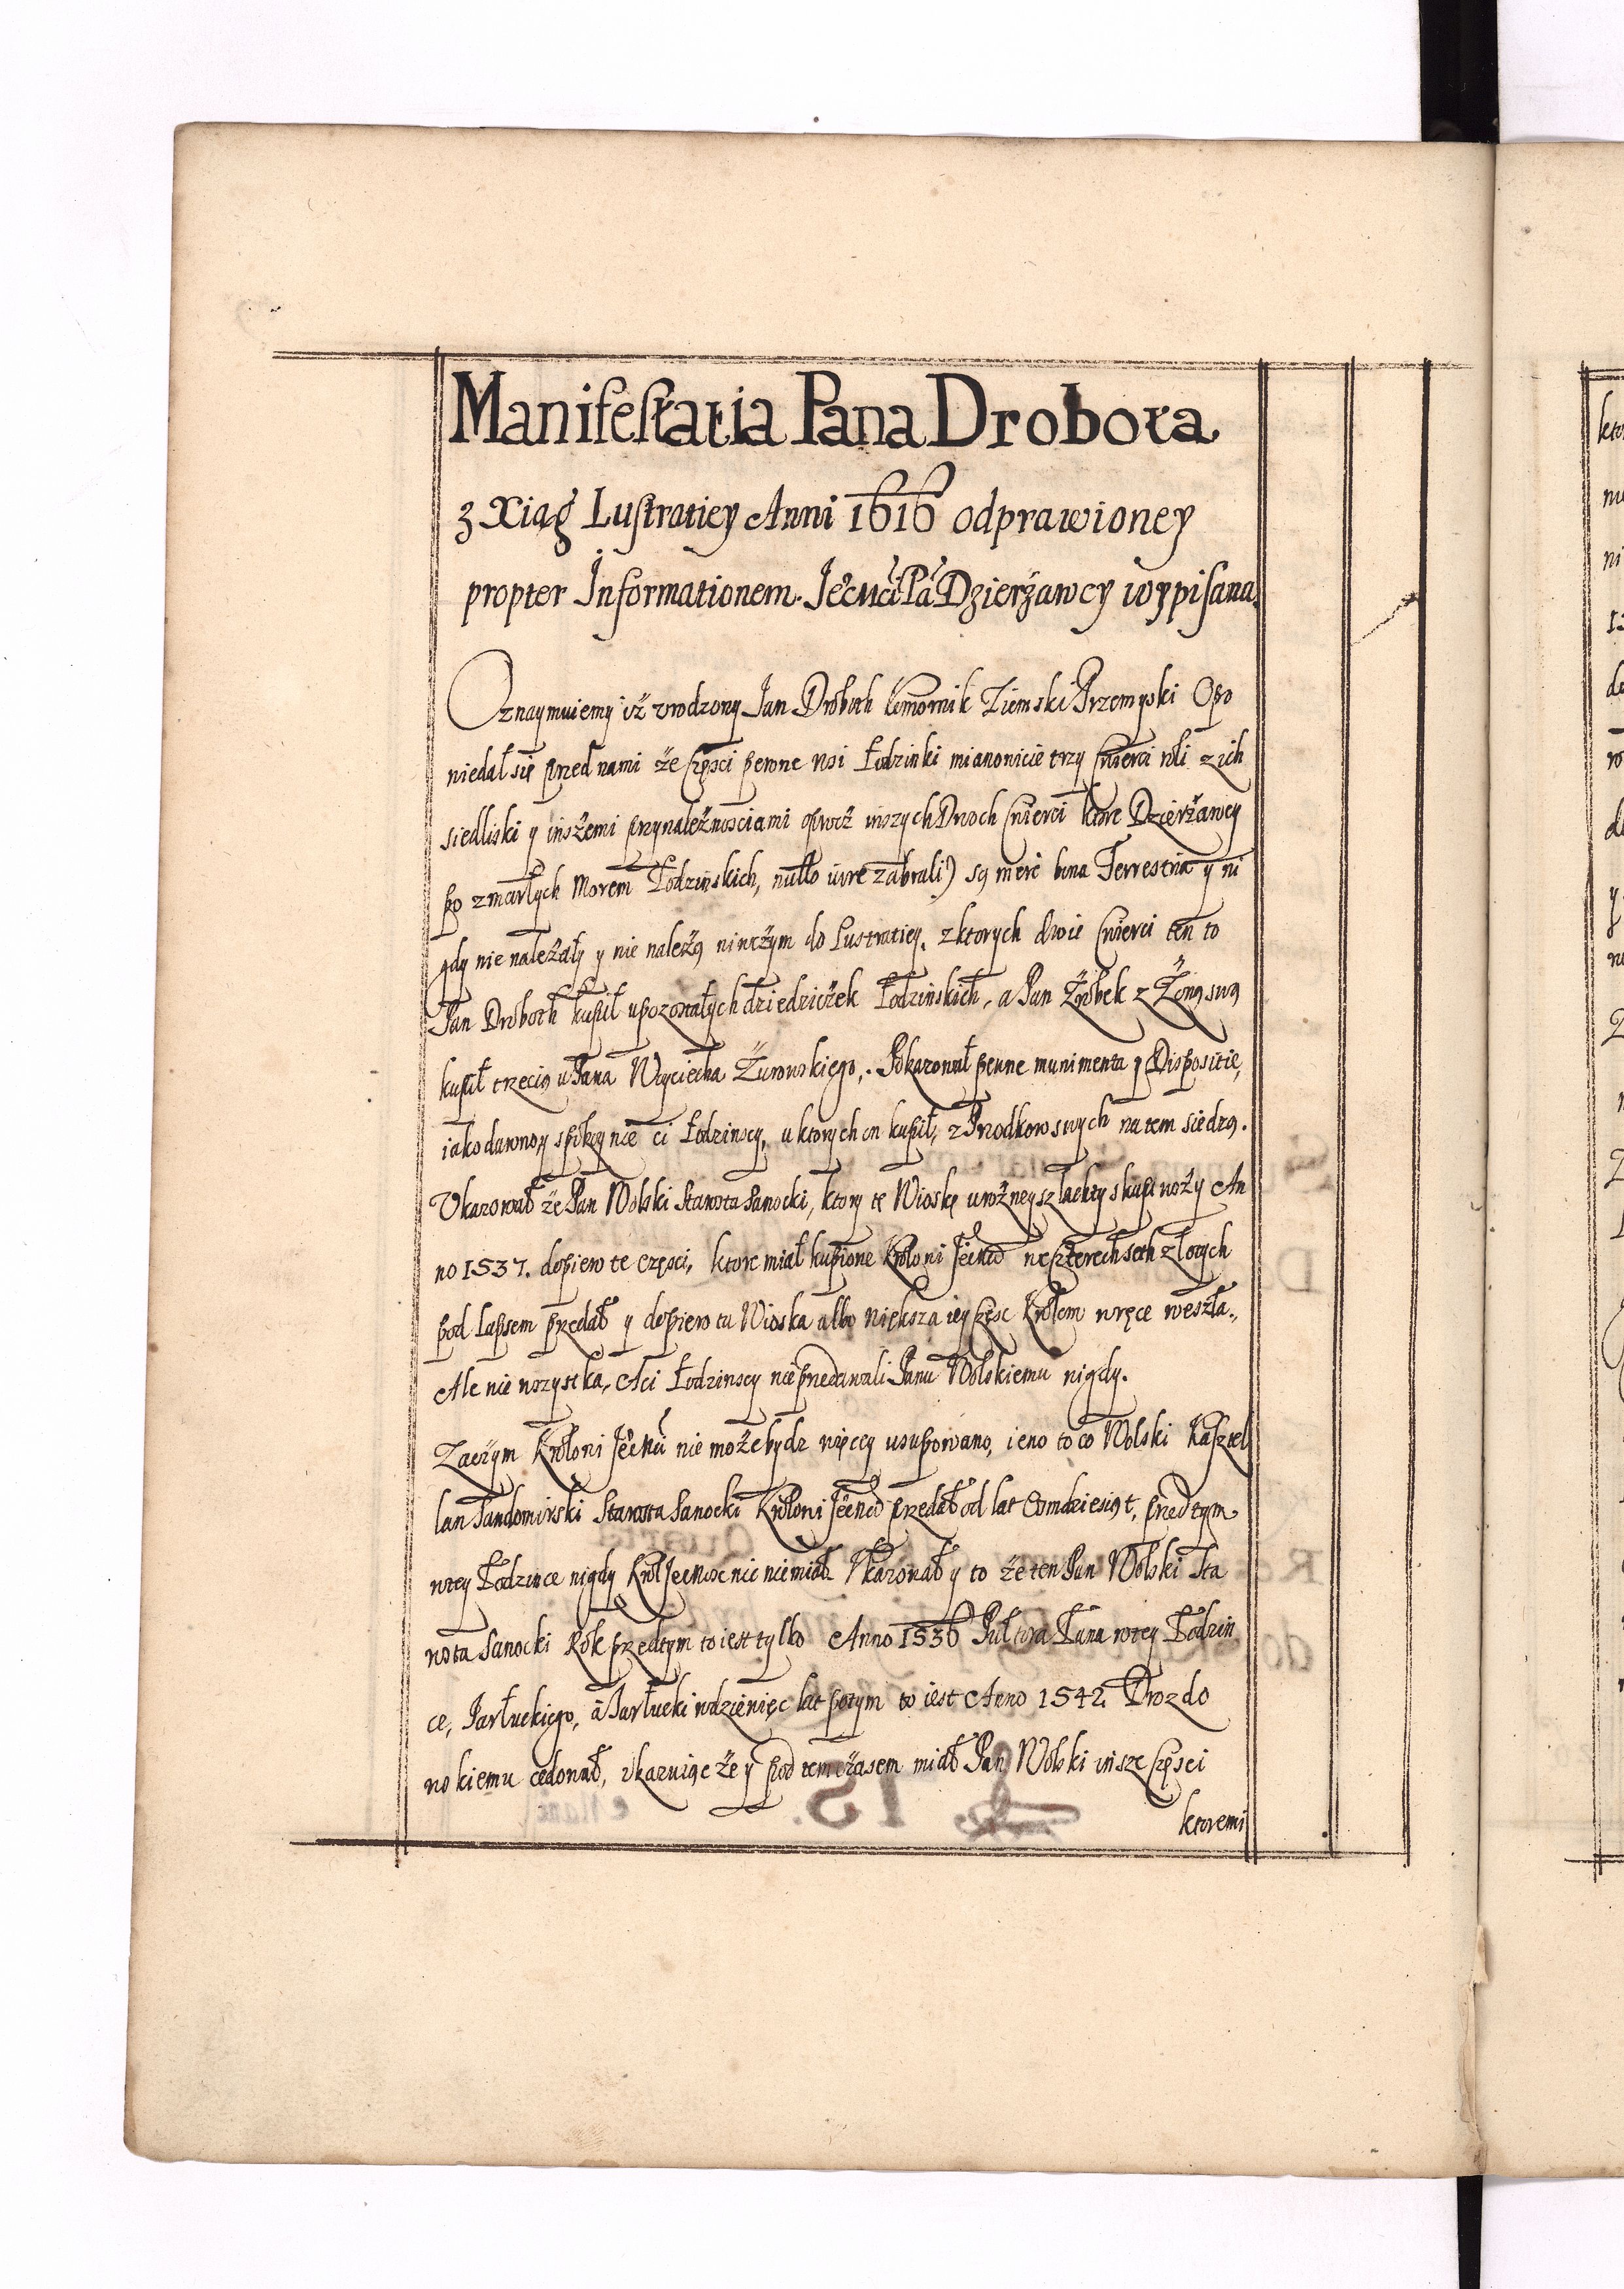 Manifestatia Pana Drobota
z Xiąg Lustratiey Anni 1616 odprawioney
propter Informationem Jećmći Pa Dzierżawcy wypisana.
Oznaymuiemy iż vrodzony Jan Droboth komornik Ziemski Przemyski Opo
wiedał się przed nami że części pewne wsi Łodzinki mianowicie trzy ćwierci roli z ich
siedliski y inszemi przynależnosciami oprocz inszych Dwoch ćwierci ktore Dzierżawcy
po zmarłych Morem Łodzińskich, nullo iure zabrali) są mere bona Terrestria y ni
gdy nie należały y nie należą niwczym do Lustratiey. z ktorych dwie ćwierci ten to
Pan Droboth kupił v pozostałych dziedziczek Łodzińskich, a Pan Źrobek z Żoną swą
kupił trzecią v Pana Woyciecha Żurowskiego,. Pokazował pewne munimenta y Dispositie,
iako dawno y spokoynie ci Łodzinscy, u ktorych on kupił, z Przodkow swych na tem siedzą.
Vkazował że Pan Wolski Starosta Sanocki, ktory te Wioskę v rożney szlachty skupiwoży An
no 1537. dopiero te części, ktore miał kupione Krolowi Jeimci we czterechseth złotych
pod Lapsem przedał y dopiero ta Wioska albo większa iey częsc Krolom w ręce weszła.,
Ale nie wszystka, A ci Łodzinscy nie przedawali Panu Wolskiemu nigdy.
Zaczym Krolowi Jeimci nie może bydz więcey usurpowano, ieno to co Wolski Kasztel
lan Sandomirski Starosta Sanocki Krolowi Jeimci przedał od lat osmdziesiąt, przed tym
w tey Łodzince nigdy Krol Jeimosc nic nie miał. Vkazował y to że ten Pan Wolski Sta
rosta Sanocki Rok przedtym to iest tylko Anno 1536 Pułtora Łana w tey Łodzin
ce, Jarłuckiego, a Jarłucki w dziewięc lat potym to iest Anno 1542 Drozdo
wskiemu cedował, vkazuiąc że y pod tem czasem miał Pan Wolski insze części
ktoremi